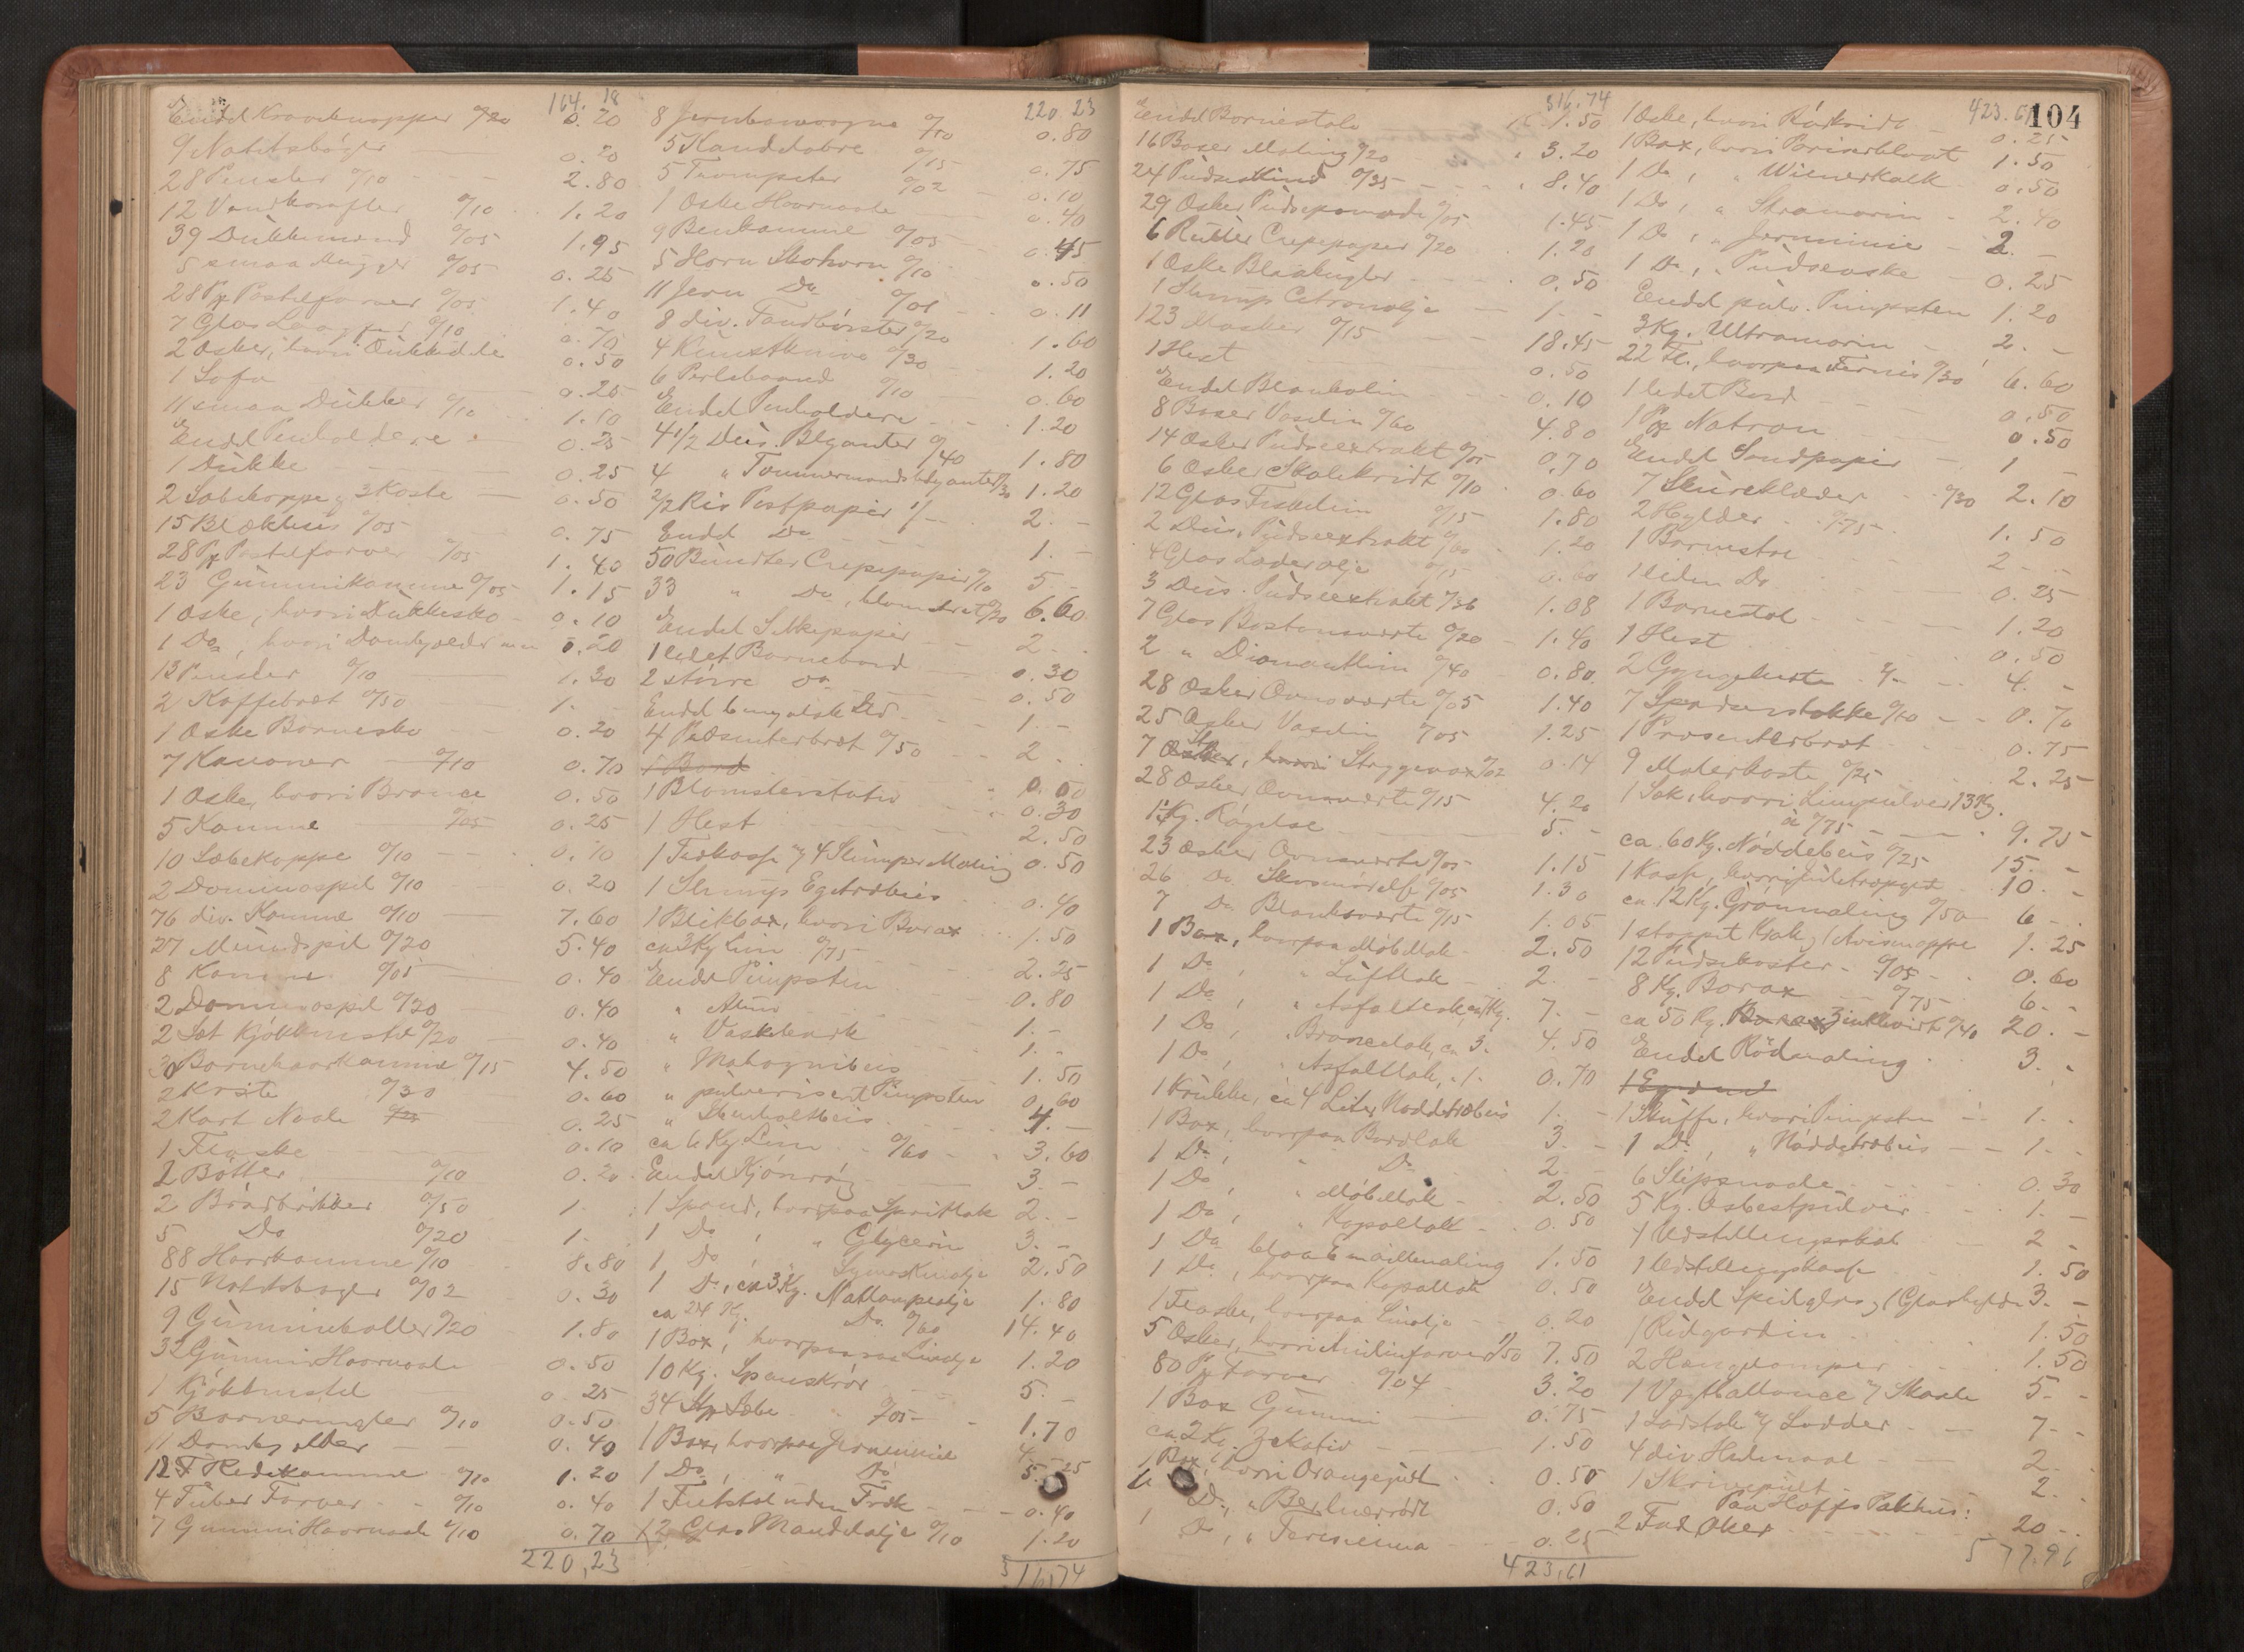 164.18
Endel Kraveknapper 0/20 0.20
9 Notitsbøger 0.20
28 Pensler 0/10 2.80
12 Vandkarafler 0/10 1.20
39 Dukkemænd 0/05 1.95
5 smaa Mugger 0/05 0.25
28 Pk Pastelfarver 0/05 1.40
7 Glas 0/10 0.70
2 Æsker, hvori 0.50
1 Sofa 0.25
11 smaa Dukker 0/10 1.10
Endel Penholdere 0.25
1 Dukke 0.25
2 Sæbekoppe, 3 Koste 0.50
15 Blækhus 0/05 0.75
28 Pk Pastelfarver 0/05 1.40
23 Gummikamme 0/05 1.15
1 Æske, hvori Dukkesko 0.10
1 Do, hvori 0.20
13 Pensler 0/10 1.30
2 Kaffebræt 0/50 1.-
1 Æske Børnesko 0.20
7 Kanoner 0/10 0.70
1 Æske, hvori Bronce 0.50
5 Kamme 0/05 0.25
10 Sæbekoppe 0/10 0.10
2 Dominospil 0/10 0.20
76 div. Kamme 0/10 7.60
27 Mundspil 0/20 5.40
8 Kamme 0/05 0.40
2 Dominospil 0/20 0.40
2 Sæt Kjøkkenstel 0/20 0.40
30 Børnehaarkamme 0/15 4.50
2 Kriste 0/30 0.60
2 Kart Naale 0.25
1 Flaske 0.10
2 Bøtter 0/10 0.20
2 Brødbrikker 0/50 1.
5 Do 0/20 1.
88 Haarkamme 0/10 8.80
15 Notitsbøger 0/02 0.30
9 Gummiballer 0/20 1.80
32 Gummi Haarnaale 0.50
1 Kjøkkenstel 0.25
5 Børnerangler 0/10 0.50
11 0.40
12 Redekamme 0/10 1.20
4 Tuber Farver 0/10 0.40
7 Gummi Haarnaale 0/10 0.70
220,23
220 23
8 Jernbanevogne 0/10 0.80
5 Kandelabre 0/15 0.75
5 Trompeter 0/02 0.10
1 Æske Haarnaale 0.40
9 Benkamme 0/05 0.45
5 Horn Skohorn 0/10 0.50
11 Jern Do 0/01 0.11
8 div. Tandbørster 0/20 1.60
4 Kunstknive 0/30 1.20
6 Perlebaand 0/10 0.60
Endel Penholdere 1.20
4 1/2 Dus. Blyanter 0/40 1.80
4 " Tømmermandsblyanter 0/30 1.20
2/2 Ris Postpapir 1/- 2.-
Endel Do 1.-
50 Bundter Crepepapir 0/10 5.-
33 " Do, blomstret 0/20 6.60
Endel Silkepapir 2.
1 lidet Børnebord 0.30
2 større do 0.50
Endel bengalsk Ild 1.-
4 Præsenterbræt 0/50 2.
1 Bord
1 Blomsterstativ 0.50
0.30
1 Hest 2.50
1 Trækasse og 4 Slumper Maling 0.50
1 Slump Egetræbeis 0.40
1 Blikbox, hvori Borax 1.50
ca 3 Kg Lim 0/75 2.25
Endel Pimpsten 0.80
" Alun 1.-
" Vaskebark 1.-
" Mahognibeis 1.50
" pulveriseret Pimpsten 0.60
" 4.-
ca 6 Kg Lim 0/60 3.60
Endel Kjønrøg 3.-
1 Spand, hvorpaa Spritlak 2.-
1 Do, " Glycerin 3.-
1 Do, Symaskinolje 2.50
1 Do, ca 3 Kg. Natlampeolje 1.80
ca 24 Kg. Do. 0/60 14.40
1 Box, hvorpaa raa Linolje 1.20
10 Kg. Spanskrør 5.-
34 Stk Sæbe 0/05 1.70
1 Box, hvorpaa Jernmønie
1 Do, " Do 5.25
1 Feltstol uden Træk 0.40
12 Glas Mandelolje 0/10 1.20
316,74
316.74
Endel Børnestole 1.50
16 Boxer Maling 0/20 3.20
24 Pudseskind 0/35 8.40
29 Æsker Pudsepomade 0/05 1.45
6 Ruller Crepepapir 0/20 1.20
1 Æske Blaakugler 0.50
1 Slump Citronolje 1.-
123 Masker 0/15 18.45
1 Hest 0.50
Endel Blankolin 0.10
8 Boxer Vaselin 0/60 4.80
14 Æsker Pudseextrakt 0/05 0.70
6 Æsker Skolekridt 0/10 0.60
12 Glas Fiskelim 0/15 1.80
2 Dus. Pudseextrakt 0/60 1.20
4 Glas Læderolje 0/15 0.60
3 Dus. Pudseextrakt 0/36 1.08
7 Glas Bostonsværte 0/20 1.40
2 " Diamantlim 0/40 0.80
28 Æsker Ovnsværte 0/05 1.40
25 Æsker Vaselin 0/05 1.25
7 Stk Strygevox 0/02 0.14
28 Æsker Ovnsværte 0/15 4.20
1 Kg. Røgelse 5.-
23 Æsker Ovnsværte 0/05 1.15
26 Do. Skosmørelse 0/05 1.30
7 Do Blanksværte 0/15 1.05
1 Box, hvorpaa Møbellak 2.50
1 Do, " Luftlak 2.-
1 Do, " Asfaltlak, ca Kg. 7.-
1 Do, Broncelak, ca 3. 4.50
1 Do, " Asfaltlak, 0.70
1 Krukke, ca 4 Liter Nøddetræbeis 1.-
1 Box, hvorpaa Bordlak 3.-
1 Do, " Do 2.-
1 Do, " Møbellak 2.50
1 Do, " Kopallak 0.50
1 Do blaa Emaillemaling 1.50
1 Do, hvorpaa Kopallak 0.50
1 Flaske, hvorpaa Linolje 0.20
5 Æsker, hvori Anilinfarver 1/50 7.50
80 Pk Farver 0/04 3.20
1 Box Gummi 0.75
ca 2 Kg. Zekativ 1.50
1 Box, hvori Orangegult 0.50
1 Do., " Berlinerrødt 0.50
1 Do, " Terrasienna 0.25
423,61
423.61 104
1 Æske, hvori Raakridt 0.25
1 Box, hvori Pariserblaat 1.50
1 Do, " Wienerkalk 0.50
1 Do, " 2.40
1 Do, " Jernmønie 2.-
1 Do, " Pudseaske 0.25
Endel pulv. Pimpsten 1.20
3 Kg. Ultramarin 2.-
22 Fl., hvorpaa Fernis 0/30 6.60
1 lidet Bord 0.50
1 Pk Natron 0.50
Endel Sandpapir 1 -
7 Skureklæder 0/30 2.10
2 Hylder 0/75 1.50
1 Barnestol 2 -
1 liden Do 0.25
1 Barnestol 1.20
1 Hest 0.50
2 Gyngeheste 4.-
7 Spaserstokke 0/10 0.70
1 Præsenterbræt 0.75
9 Malerkoste 0/25 2.25
1 Sæk, hvori Limpulver 13 Kg.
à 0/75 9.75
ca. 60 Kg. Nøddebeis 0/25 15.-
1 Kasse, hvori Juletræpynt 10.-
ca. 12 Kg. Grønmaling 0/50 6-.
1 stoppet Krak, 1 Avismappe 1.25
12 Pudsekoster 0/05 0.60
8 Kg. Borax 0/75 6.-
ca 50 Kg. Borax Zinkhvidt 0/40 20.-
Endel Rødmaling 3.-
1 Skuffe, hvori Pimpsten 1.
1 Do, " Nøddetræbeis 1.
6 Slipsnaale 0.30
5 Kg. Asbestpulver 1.-
1 Udstillingsskab 2 -
1 Udstillingskasse 1.50
Endel Speilglas, 1 Glashylde 3.-
1 Rulgardin 1.50
2 Hængelamper 1.50
1 Vægtballance og Skaale 5.-
1 Ladstok og Lodder 7.-
4 div Hulmaal 2.
1 Skrivepult 2.
Paa Hoffs Pakhus:
2 Fad Oker 20-.
577.96